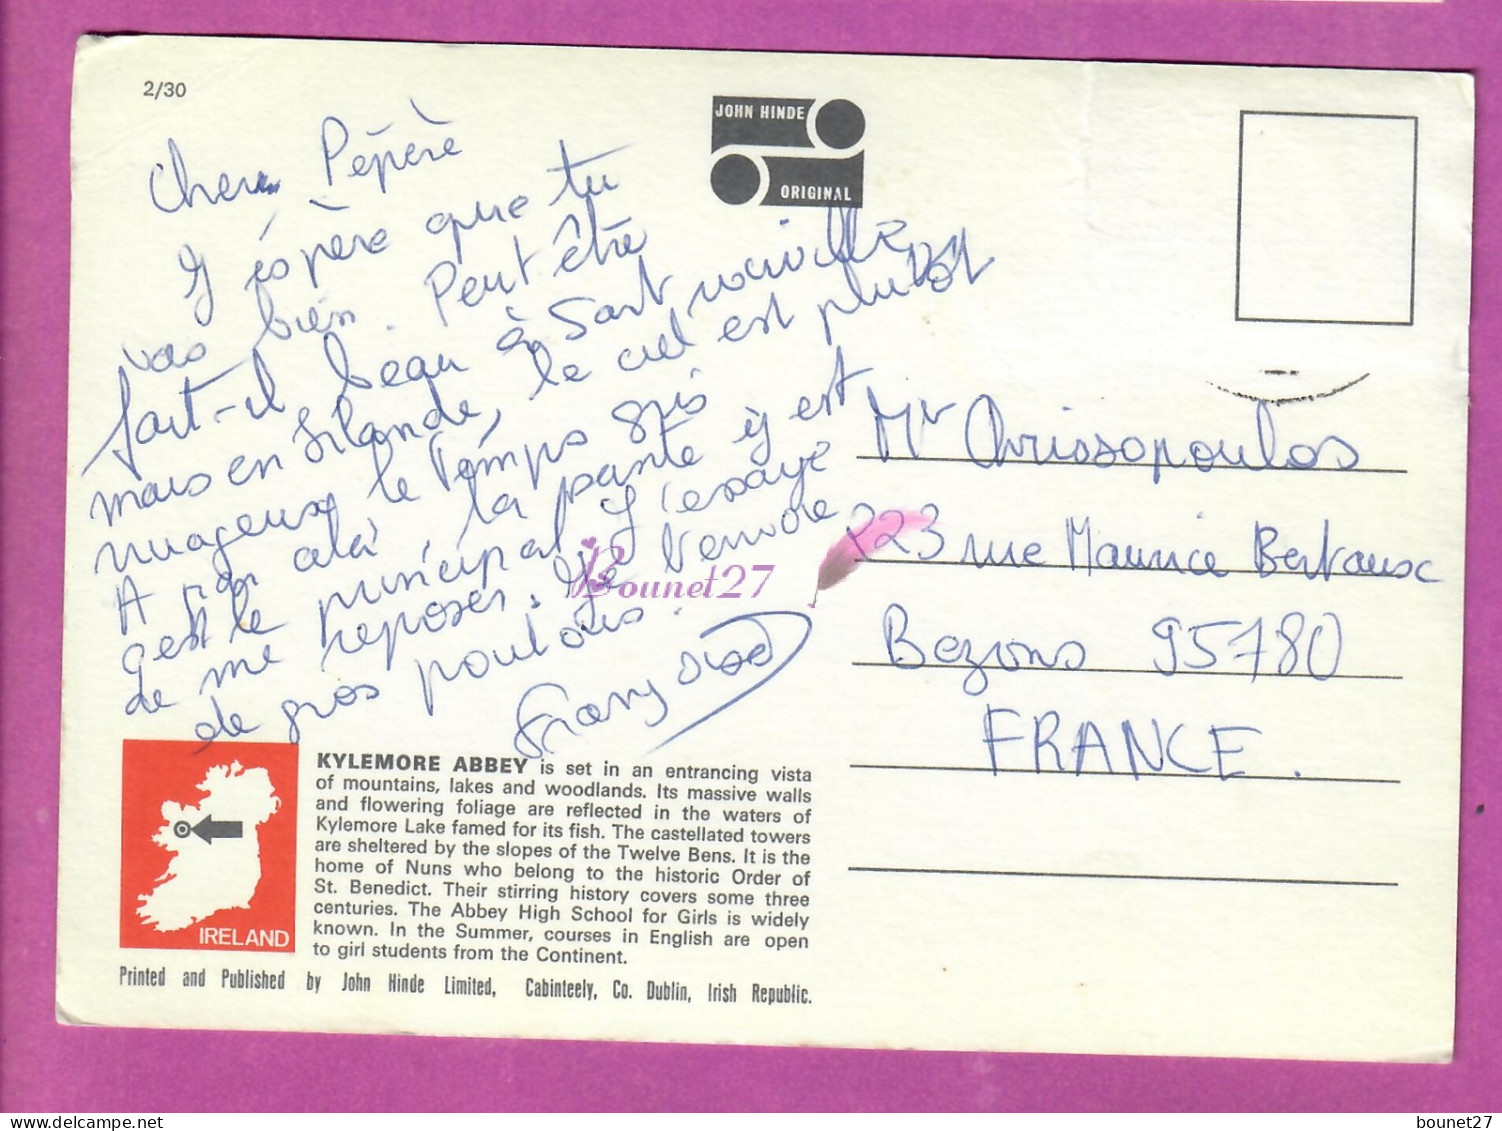 2/30
JOHN HINDE
ORIGINAL
Cher Pépère
J'éspère que tu
vas bien. Peut être
fait-il beau à Sartrouville
mais en Irlande, le ciel est plutôt
nuageux le temps gris
A par cela, la santé y est
c'est le principal J'essaye
de me reposer. Je t'envoie
de gros poutous.
Françoise
Mr Chrissopoulos
223 rue Maurice Berteaux
Bezons 95780
FRANCE.
Bounet27
KYLEMORE ABBEY is set in an entrancing vista
of mountains, lakes and woodlands. Its massive walls
and flowering foliage are reflected in the waters of
Kylemore Lake famed for its fish. The castellated towers
are sheltered by the slopes of the Twelve Bens. It is the
home of Nuns who belong to the historic Order of
St. Benedict. Their stirring history covers some three
centuries. The Abbey High School for Girls is widely
known. In the Summer, courses in English are open
to girl students from the Continent.
IRELAND
Printed and Published by John Hinde Limited, Cabinteely, Co. Dublin, Irish Republic.
delcampe.net
bounet27